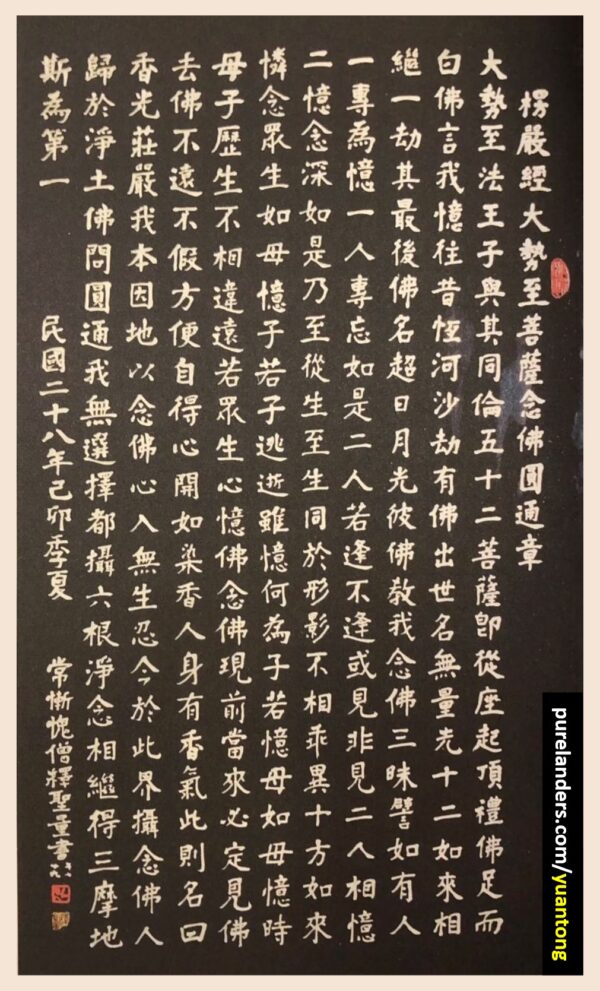 楞嚴經大勢至菩薩念佛圓通章
大勢至法王子與其同倫五十二菩薩即從座起頂禮佛足而
白佛言我憶往昔恆河沙劫有佛出世名無量光十二如來相
繼一劫其最後佛名超日月光彼佛教我念佛三昧譬如有人
一專為憶一人專忘如是二人若逢不逢或見非見二人相憶
二憶念深如是乃至從生至生同於形影不相乖異十方如來
憐念眾生如母憶子若子逃逝雖憶何為子若憶母如母憶時
母子歷生不相違遠若眾生心憶佛念佛現前當來必定見佛
去佛不遠不假方便自得心開如染香人身有香氣此則名曰
香光莊嚴我本因地以念佛心入無生忍今於此界攝念佛人
歸於淨土佛問圓通我無選擇都攝六根淨念相繼得三摩地
斯為第一 民國二十八年己卯季夏 常慚愧僧釋聖量書
purelanders.com/yuantong